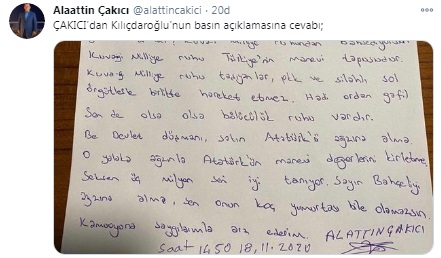 Alaattin Çakıcı @alattincakici · 20d
ÇAKICI'dan Kılıçdaroğlu'nun basın açıklamasına cevabı;
Kuvayi Milliye ruhu Türkiye'nin manevi tapusudur.
Kuvayi Milliye ruhu taşıyanlar, pkk ve silahlı sol
örgütlerle birlikte hareket etmez. Hadi ordan gafil
Sen de olsa olsa bölücülük ruhu vardır.
Be Devlet düşmanı, sakın Atatürk'ü ağzına alma.
O yalaka ağzınla Atatürk'ün manevi değerlerini kirletme.
Seksen üç milyon seni iyi tanıyor. Sayın Bahçeliyi
ağzına alma, sen onun koç yumurtası bile olamazsın.
Kamuoyuna saygılarımla arz ederim. ALATTİN ÇAKICI
Saat 14 50 18.11.2020